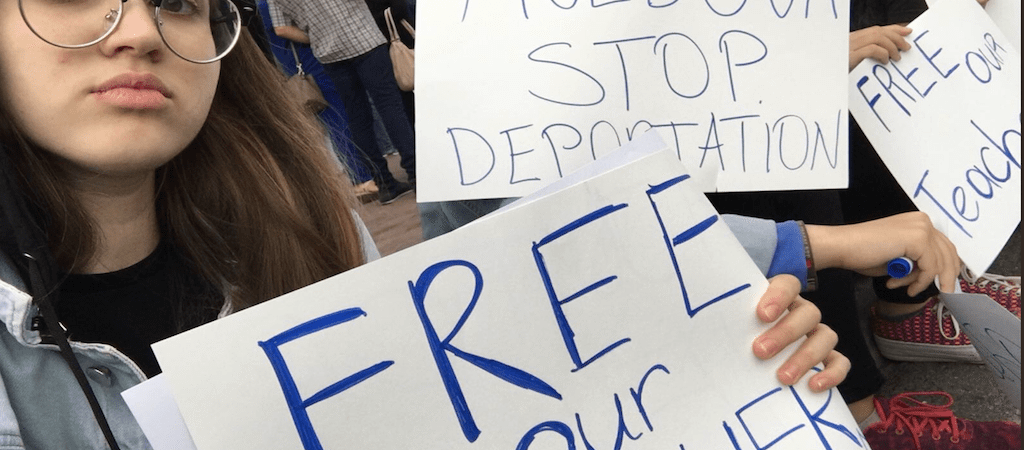 STOP.
DEPORTATION
FREE OUR
Teach
FREE
our